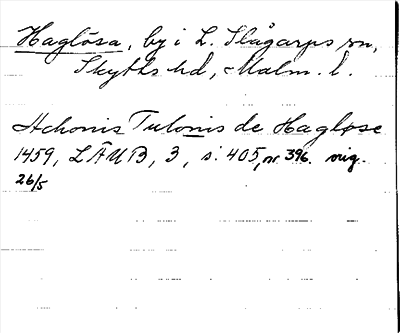 Haglösa, by i L. Slågarps sn,
Skytts hd, Malm. l.
Achonis Tulonis de Hagløse
1459, LÄUB, 3, s. 405, nr 396. orig.
26/5